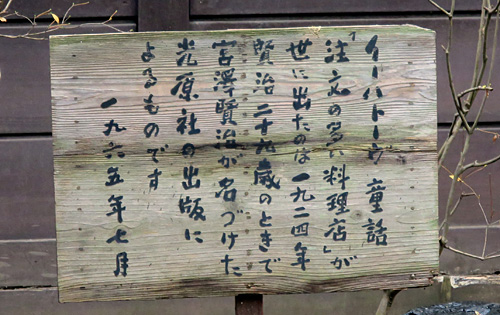 イーハトーヴ 童話
「注文の多い料理店」が
世に出たのは一九二四年
賢治二十九歳のときで
宮澤賢治が名づけた
光原社の出版に
よるものです
一九六五年七月